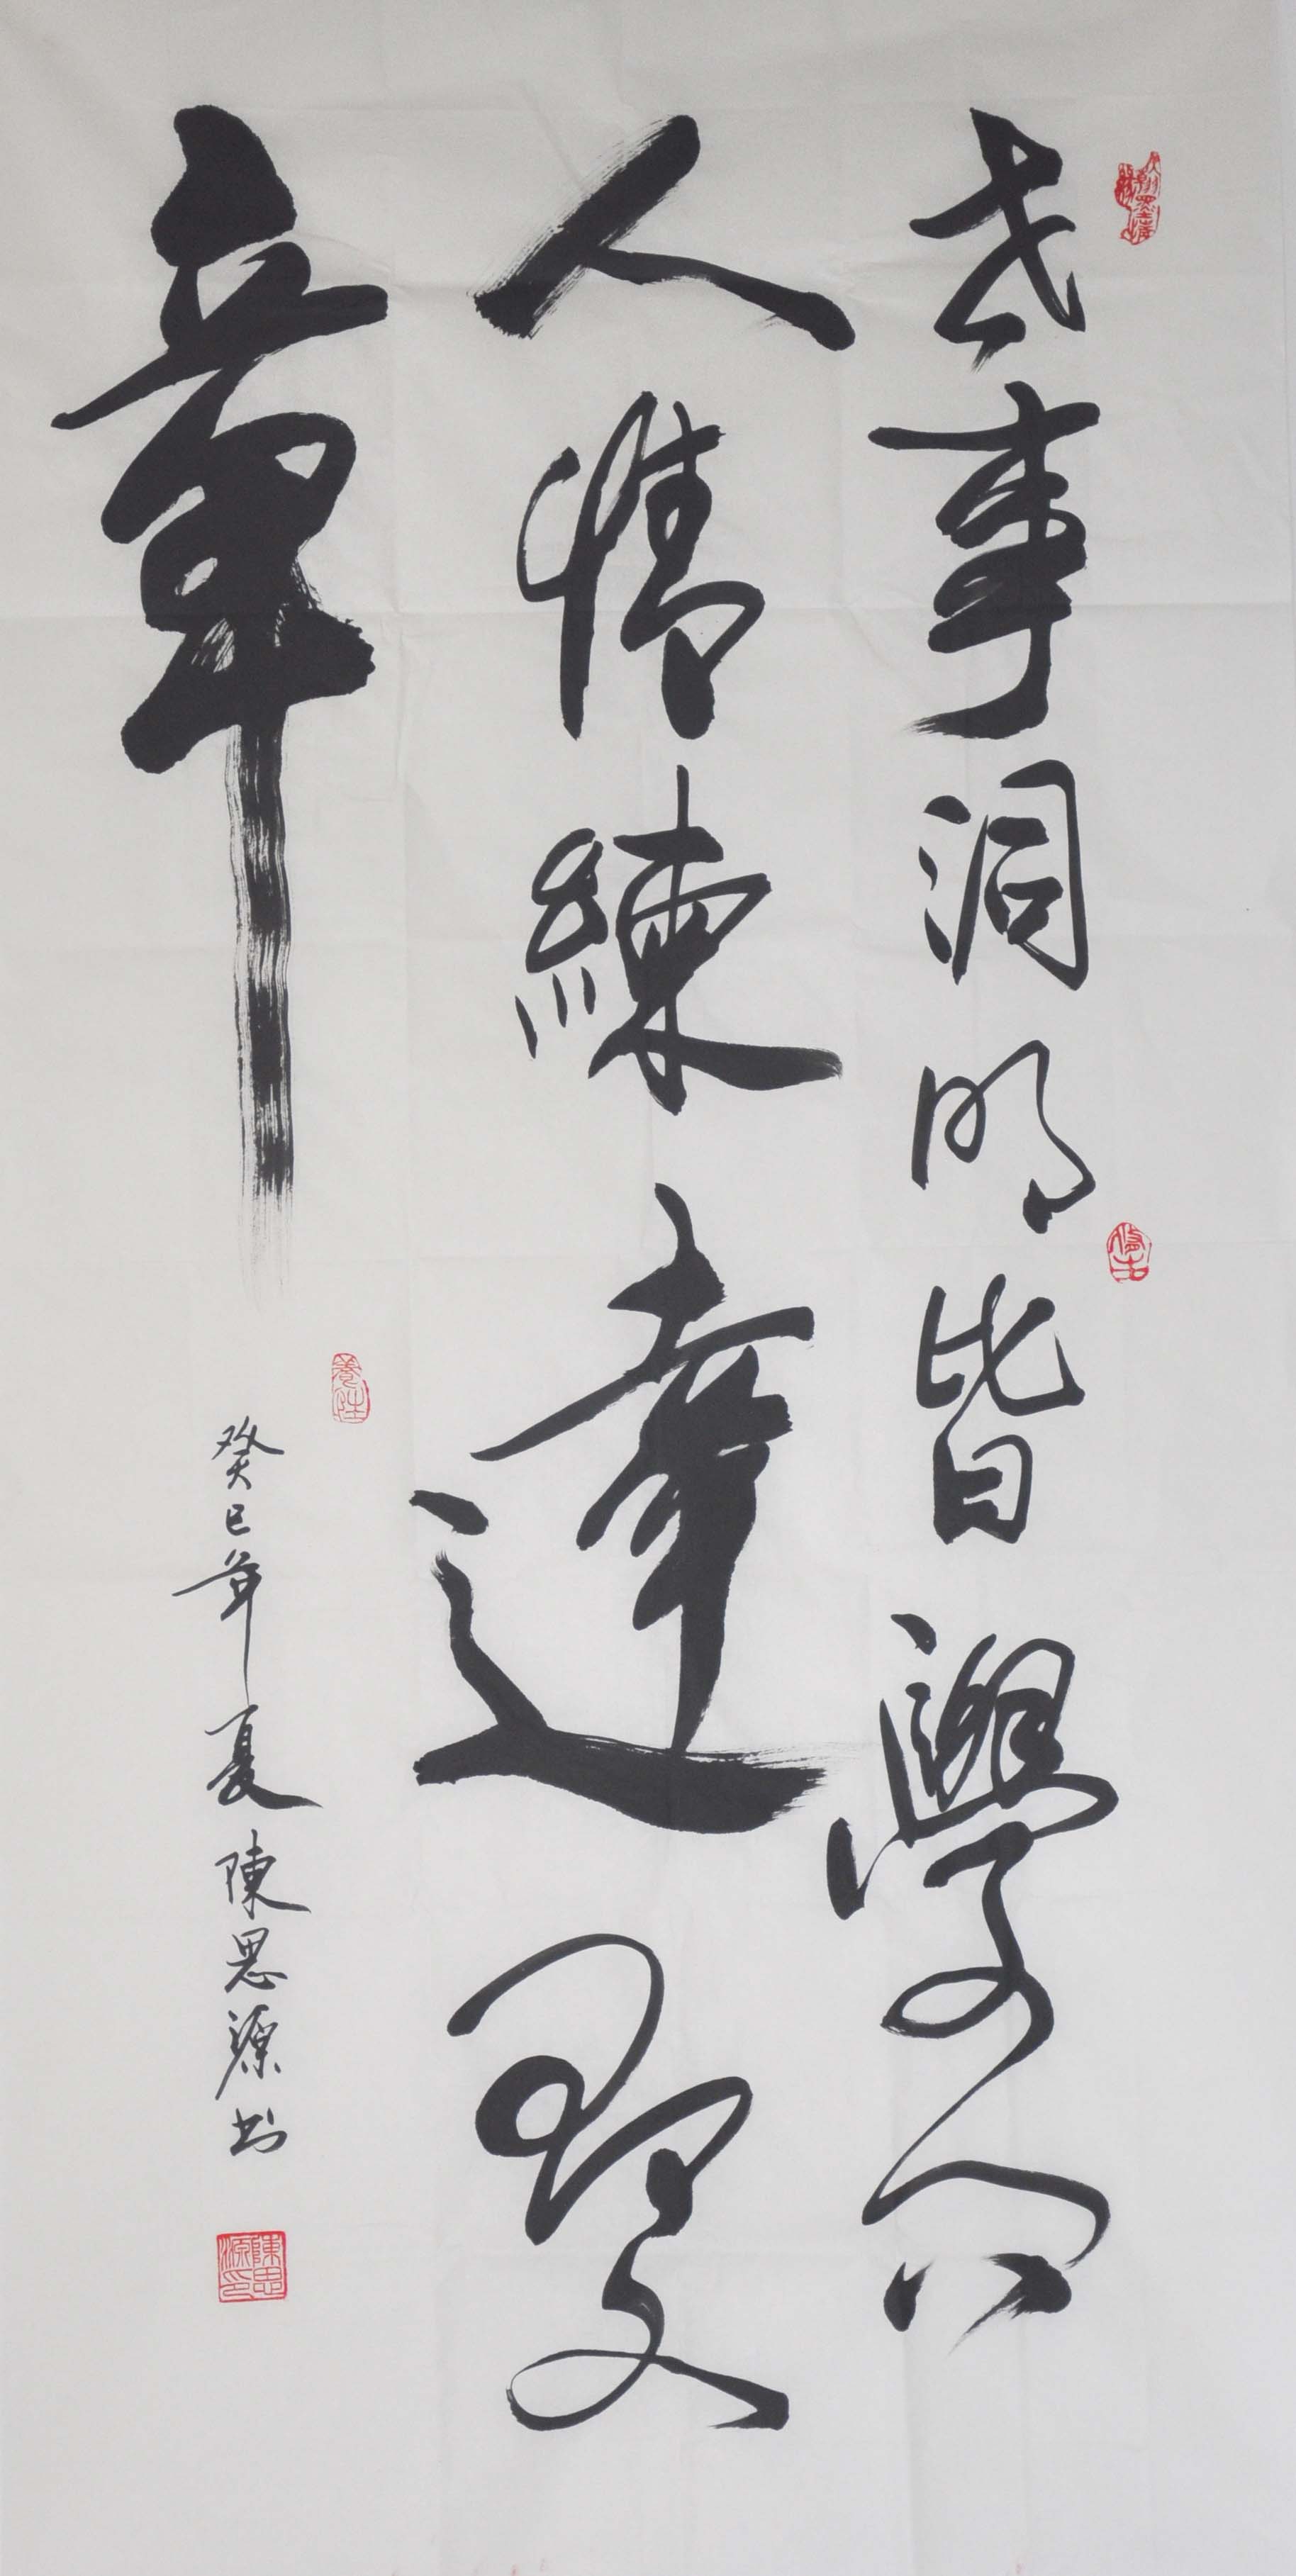 世事洞明皆學問
人情練達即文
章
癸巳年夏陳思源书
陳思源印